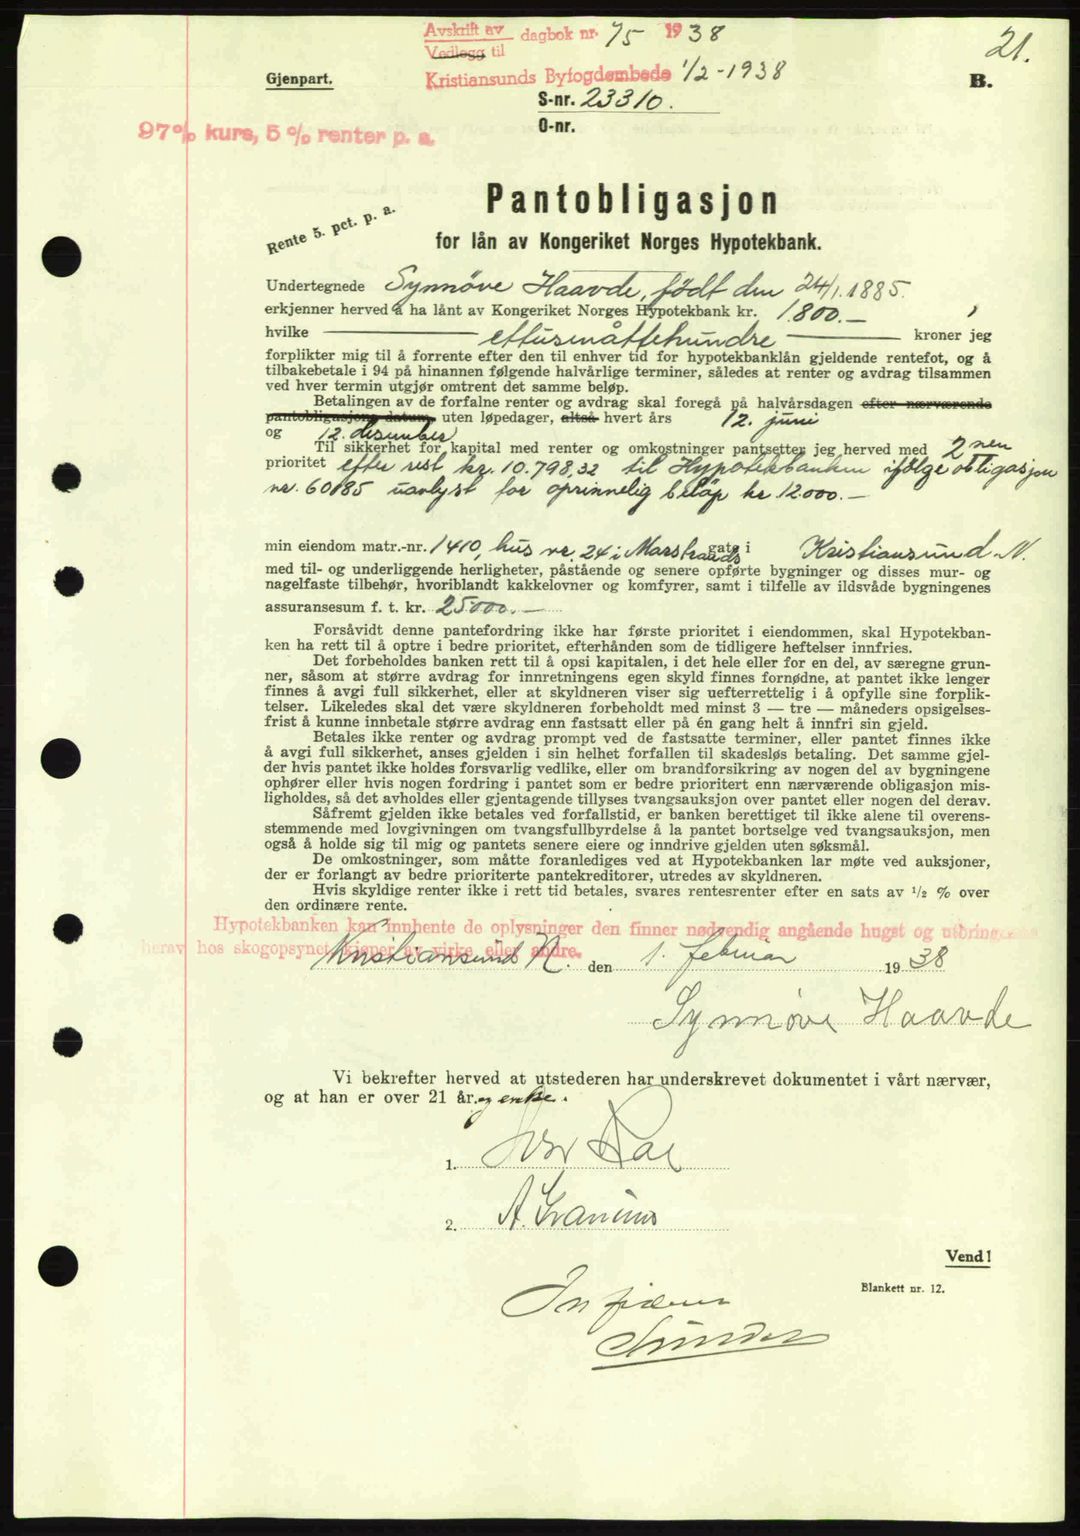 Avskrift av dagbok nr. 75 1938
Vedlegg til
Kristiansunds Byfogdembede 1/2-1938
21.
Gjenpart.
B.
S-nr. 23310.
O-nr.
97% kurs, 5 % renter p. a.
Pantobligasjon
Rente 5. pct. p. a.
for lån av Kongeriket Norges Hypotekbank.
Undertegnede Synnøve Haavde, født den 24/1.1885.
erkjenner herved å ha lånt av Kongeriket Norges Hypotekbank kr. 1.800.—,
hvilke ettusenåttehundre kroner jeg
forplikter mig til å forrente efter den til enhver tid for hypotekbanklån gjeldende rentefot, og å
tilbakebetale i 94 på hinannen følgende halvårlige terminer, således at renter og avdrag tilsammen
ved hver termin utgjør omtrent det samme beløp.
Betalingen av de forfalne renter og avdrag skal foregå på halvårsdagen efter nærværende
pantobligasjons datum, uten løpedager, altså hvert års 12. juni
og 12. desember
Til sikkerhet for kapital med renter og omkostninger pantsetter jeg herved med 2nen
prioritet efter rest kr. 10.798,32 til Hypotekbanken ifølge obligasjon
nr. 60185 utlyst for oprinnelig beløp kr. 12000.—
min eiendom matr.-nr. 1410, hus nr 24 i Marstrands gate i Kristiansund N.
med til- og underliggende herligheter, påstående og senere opførte bygninger og disses mur- og
nagelfaste tilbehør, hvoriblandt kakkelovner og komfyrer, samt i tilfelle av ildsvåde bygningenes
assuransesum f. t. kr. 25000.—
Forsåvidt denne pantefordring ikke har første prioritet i eiendommen, skal Hypotekban-
ken ha rett til å optre i bedre prioritet, efterhånden som de tidligere heftelser innfries.
Det forbeholdes banken rett til å opsi kapitalen, i det hele eller for en del, av særegne grun-
ner, såsom at større avdrag for innretningens egen skyld finnes fornødne, at pantet ikke lenger
finnes å avgi full sikkerhet, eller at skyldneren viser sig uefterrettelig i å opfylle sine forplik-
telser. Likeledes skal det være skyldneren forbeholdt med minst 3 — tre — måneders opsigelses-
frist å kunne innbetale større avdrag enn fastsatt eller på én gang helt å innfri sin gjeld.
Betales ikke renter og avdrag prompt ved de fastsatte terminer, eller pantet finnes ikke
å avgi full sikkerhet, anses gjelden i sin helhet forfallen til skadesløs betaling. Det samme gjel-
der hvis pantet ikke holdes forsvarlig vedlike, eller om brandforsikring av nogen del av bygningene
ophører eller hvis nogen fordring i pantet som er bedre prioritert enn nærværende obligasjon mis-
ligholdes, så det avholdes eller gjentagende tillyses tvangsauksjon over pantet eller nogen del derav.
Såfremt gjelden ikke betales ved forfallstid, er banken berettiget til ikke alene til overens-
stemmende med lovgivningen om tvangsfullbyrdelse å la pantet bortselge ved tvangsauksjon, men
også å holde sig til mig og pantets senere eiere og inndrive gjelden uten søksmål.
De omkostninger, som måtte foranlediges ved at Hypotekbanken lar møte ved auksjoner,
der er forlangt av bedre prioriterte pantekreditorer, utredes av skyldneren.
Hvis skyldige renter ikke i rett tid betales, svares rentesrenter efter en sats av 1/2 % over
den ordinære rente.
Hypotekbanken kan innhente de oplysninger den finner nødvendig angående hugst og utbringelse
herav hos skogopsynet, kjøper av virke eller andre.
Kristiansund N. den 1. februar 1938
Synnøve Haavde
Vi bekrefter herved at utstederen har underskrevet dokumentet i vårt nærvær,
og at han er over 21 år. og enke.
1.
2. A. Granius
Vend!
Blankett nr. 12.